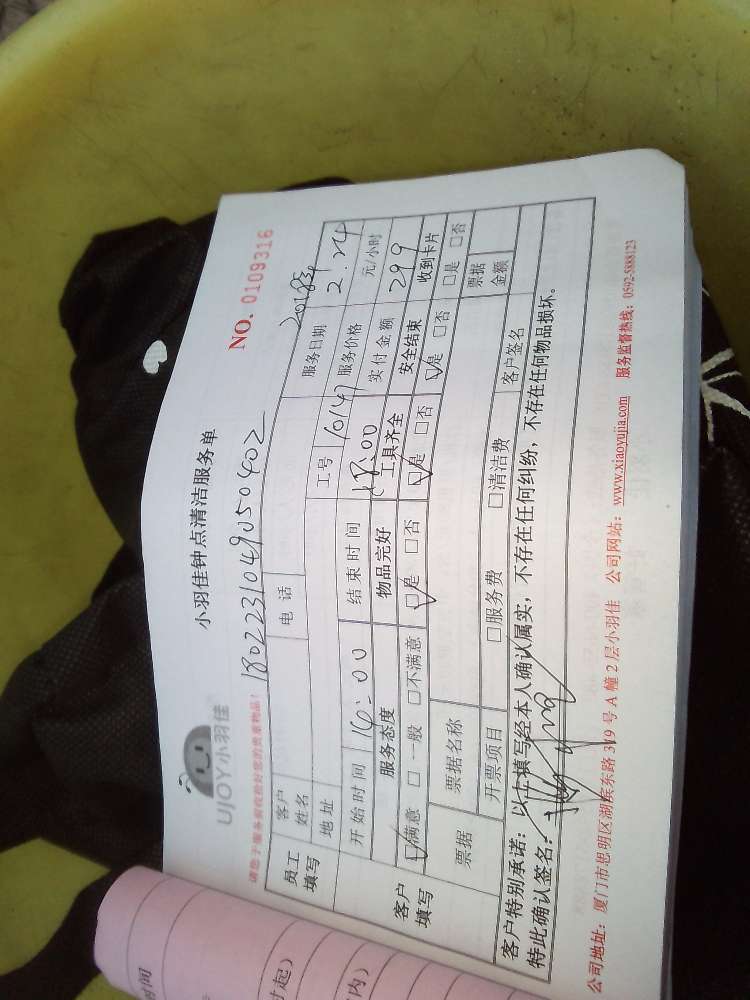 小羽佳钟点清洁服务单
UJOY小羽佳
NO. 0109316
请您于服务前收捡好您的贵重物品！
1802231049050402
员工填写
客户姓名 电话 服务日期
地址 工号 10147 服务价格 2.24 元/小时
开始时间 14:00 结束时间 18:00 实付金额 299
客户填写
服务态度 物品完好 工具齐全 安全结束 收到卡片
☑满意 □一般 □不满意 ☑是 □否 ☑是 □否 ☑是 □否 □是 □否
票据 票据名称 票据金额
开票项目 □服务费 □清洁费 客户签名
客户特别承诺：以上填写经本人确认属实，不存在任何纠纷，不存在任何物品损坏。
特此确认签名：
公司地址：厦门市思明区湖滨东路319号A幢2层小羽佳 公司网站：www.xiaoyujia.com 服务监督热线：0592-5888123
时间
时起)
内)